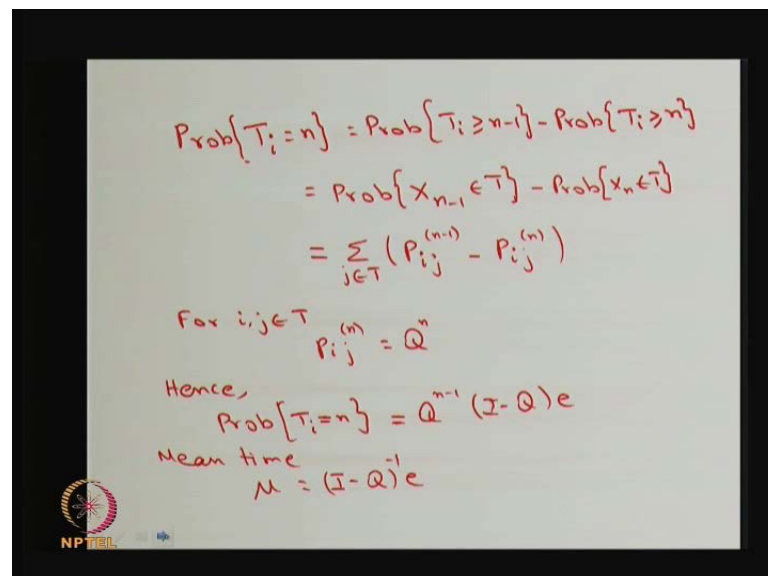 Prob{T_i = n} = Prob{T_i ≥ n-1} - Prob{T_i ≥ n}
= Prob{X_{n-1} ∈ T} - Prob{X_n ∈ T}
= Σ_{j∈T} (P_{ij}^{(n-1)} - P_{ij}^{(n)})
For i,j ∈ T
P_{ij}^{(n)} = Q^n
Hence,
Prob{T_i = n} = Q^{n-1} (I-Q)e
Mean time
μ = (I-Q)^{-1} e
NPTEL